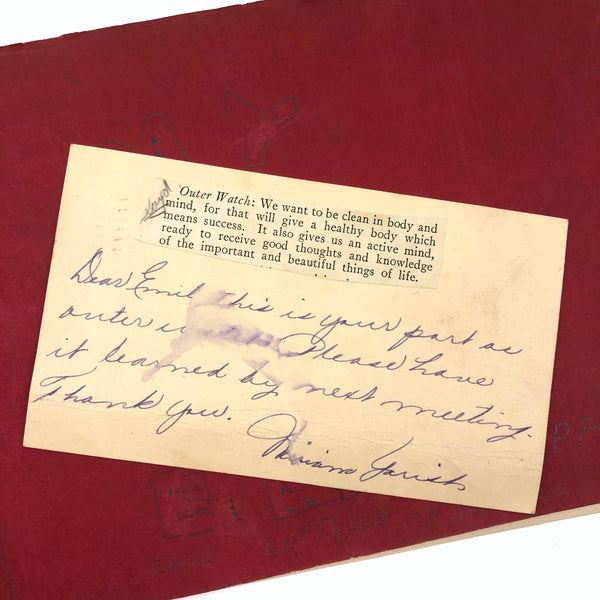 Outer Watch: We want to be clean in body and
mind, for that will give a healthy body which
means success. It also gives us an active mind,
ready to receive good thoughts and knowledge
of the important and beautiful things of life.
Dear Emil, This is your part as
outer Please have
it learned by next meeting.
Thank you.
EMIL GOTTLIEB